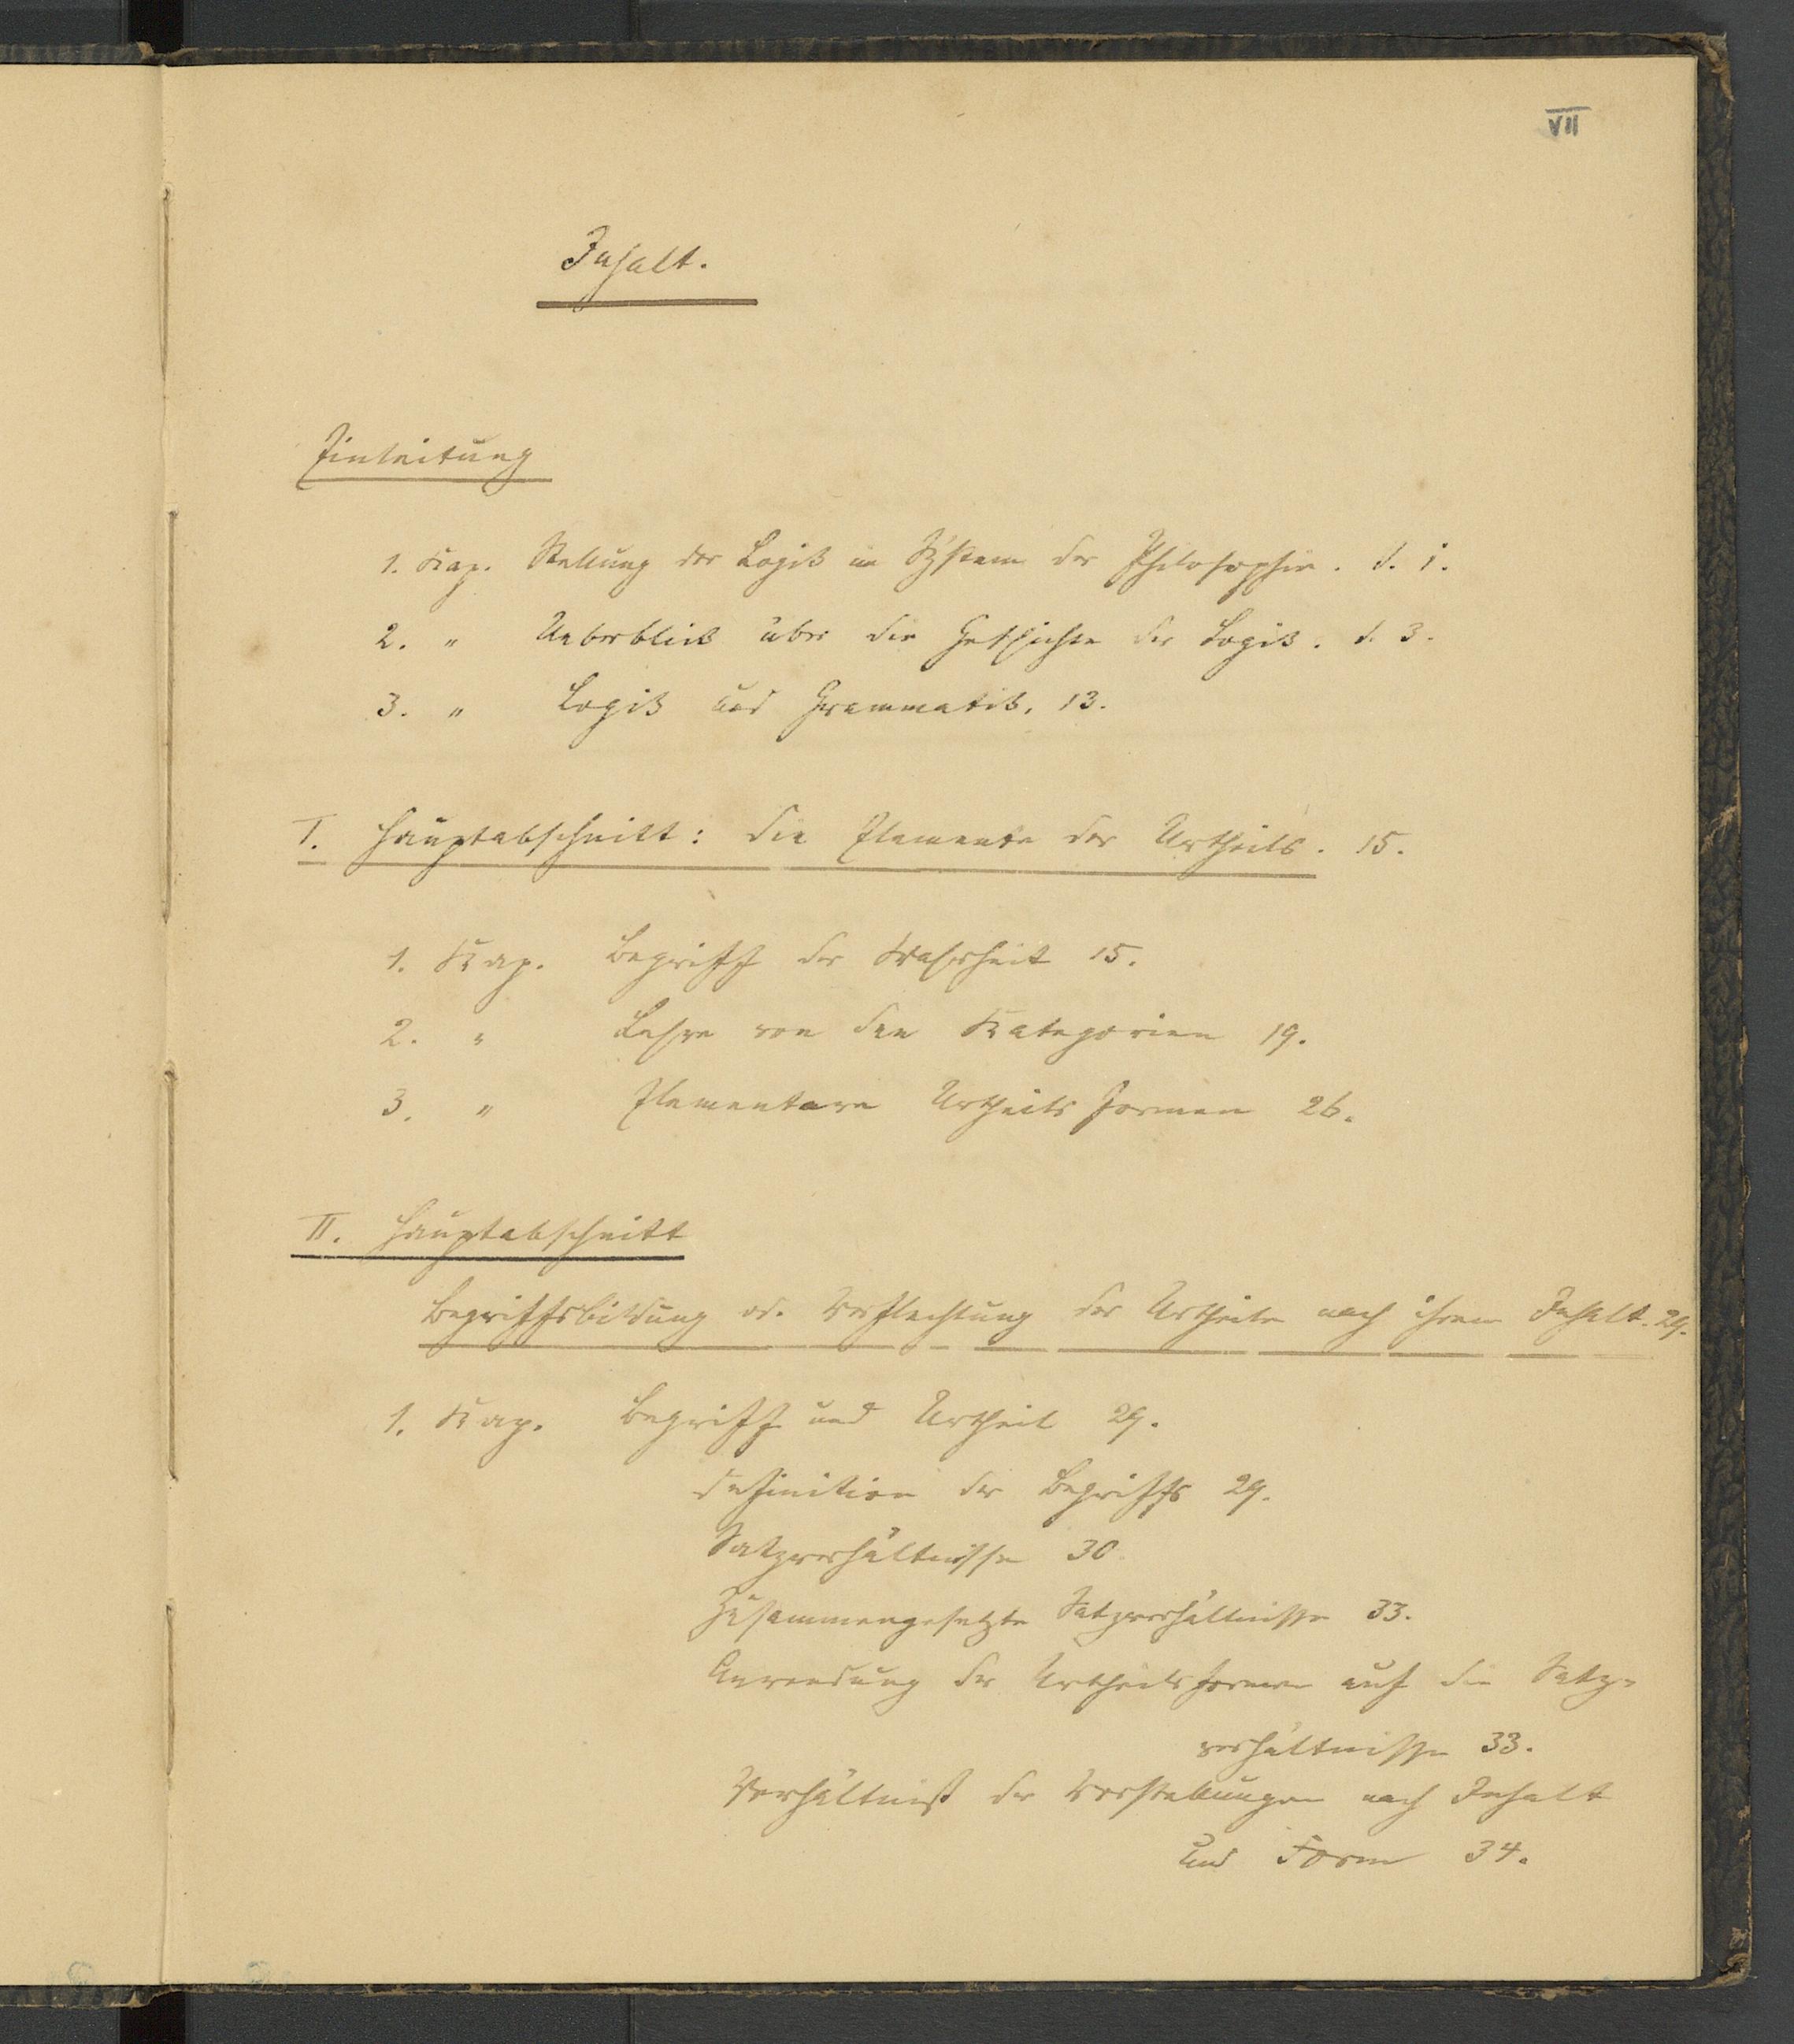 VII
Inhalt.
Einleitung
1. Kap. Stellung der Logik im System der Philosophie. S. 1.
2. " Ueberblick über die Geschichte der Logik. S. 3.
3. " Logik und Grammatik. 13.
I. Hauptabschnitt: Die Elemente des Urtheils. 15.
1. Kap. Begriff der Wahrheit 15.
2. " Lehre von den Kategorien 19.
3. " Elementare Urtheilsformen 26.
II. Hauptabschnitt
Begriffsbildung od. Verflechtung der Urtheile nach ihrem Inhalt. 29.
1. Kap. Begriff und Urtheil 29.
Definition des Begriffs 29.
Satzverhältnisse 30
Zusammengesetzte Satzverhältnisse 33.
Anwendung der Urtheilsformen auf die Satz-
verhältnisse 33.
Verhältniß der Vorstellungen nach Inhalt
und Form 34.